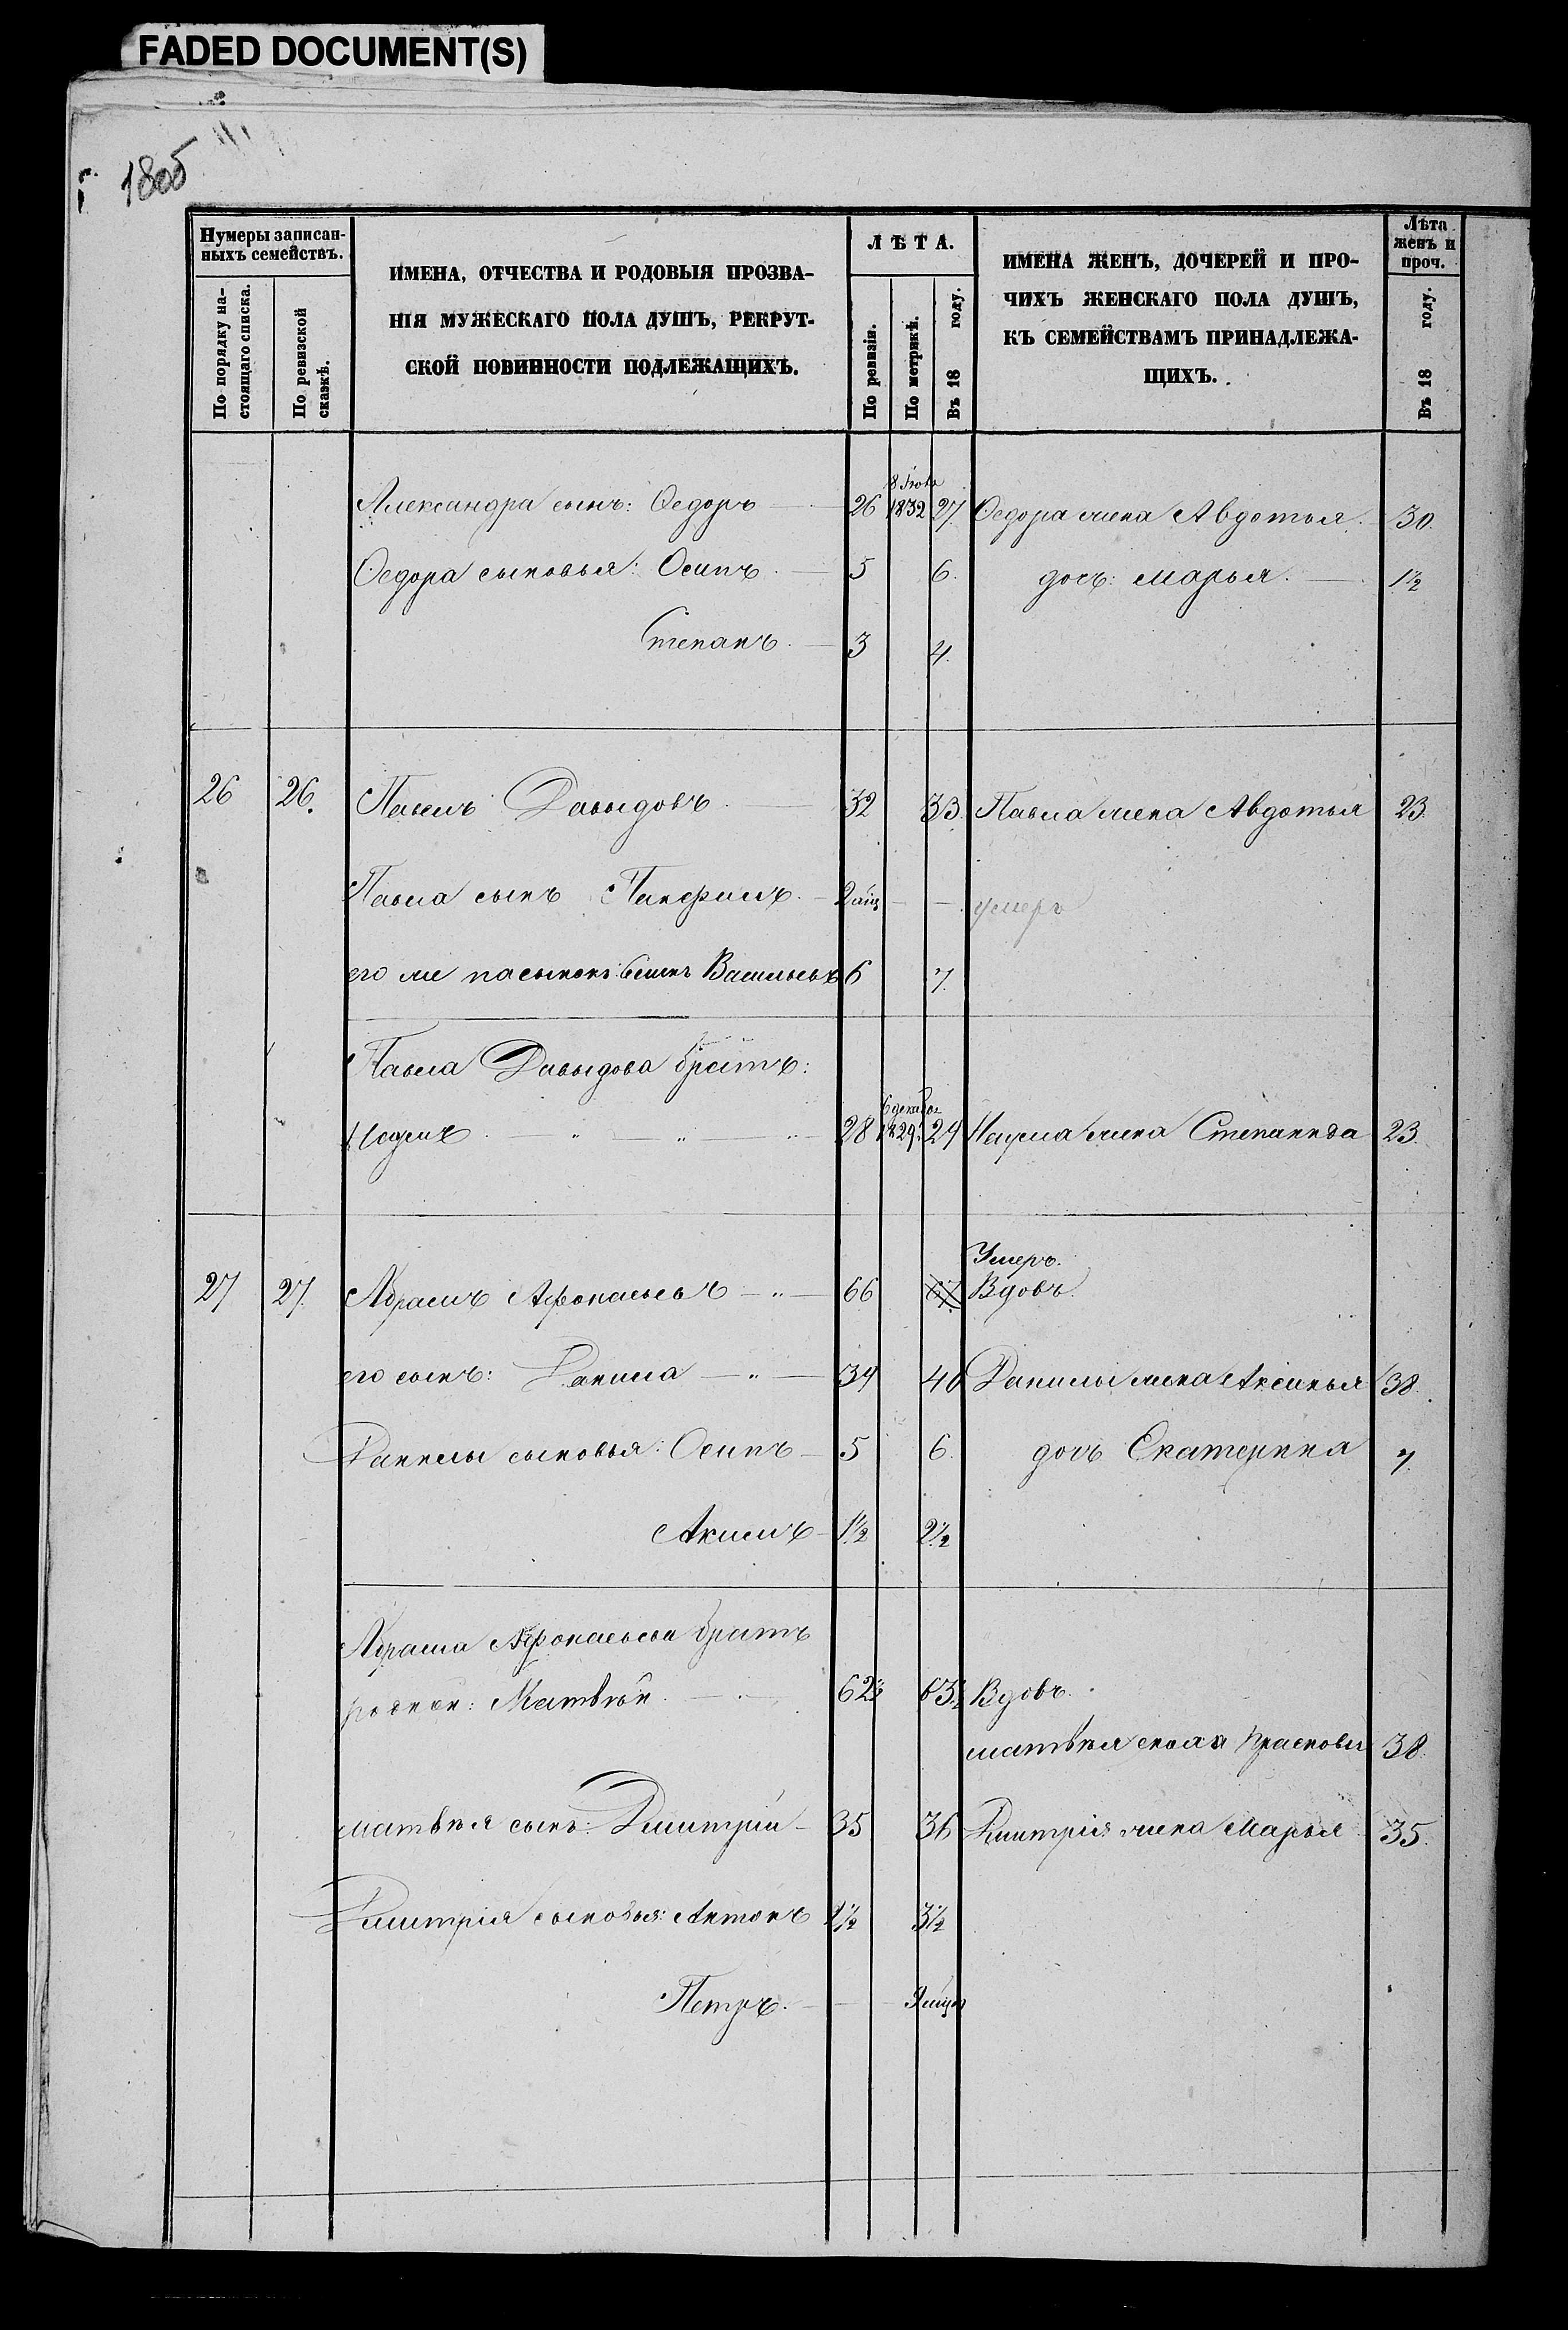 FADED DOCUMENT(S)
1805
Нумеры записан-
ныхъ семействъ.
По порядку на-
стоящаго списка.
По ревизской
сказкѣ.
ИМЕНА, ОТЧЕСТВА И РОДОВЫЯ ПРОЗВА-
НІЯ МУЖЕСКАГО ПОЛА ДУШЪ, РЕКРУТ-
СКОЙ ПОВИННОСТИ ПОДЛЕЖАЩИХЪ.
ЛѢТА.
По ревизіи.
По метрикѣ.
Въ 18 году.
ИМЕНА ЖЕНЪ, ДОЧЕРЕЙ И ПРО-
ЧИХЪ ЖЕНСКАГО ПОЛА ДУШЪ,
КЪ СЕМЕЙСТВАМЪ ПРИНАДЛЕЖА-
ЩИХЪ.
Лѣта
женъ и
проч.
Въ 18 году.
Александра сынъ: Ѳедоръ 26 1832 27 Ѳедора жена Авдотья 30
Ѳедора сыновья: Осипъ 5 6 дочь: Марья 1½
Степанъ 3 4
26 26. Павелъ Давыдовъ 32 33 Павла жена Авдотья 23
Павла сынъ Панфилъ умеръ
его же пасынокъ: Васильевъ 6 7
Павла Давыдова братъ:
6 декабря
Наумъ 28 1829 29 Наума жена Степанида 23
Умеръ.
27 27 Абрамъ Афонасьевъ 66 67 Вдовъ
его сынъ: Данила 39 40 Данилы жена Аксинья 38
Данилы сыновья: Осипъ 5 6 дочь Екатерина 7
Акимъ 1½ 2½
Абрама Афонасьева братъ
родной: Матвѣй 62½ 63½ Вдовъ
Матвѣя сноха Прасковья 38
Матвѣя сынъ: Дмитрій 35 36 Дмитрія жена Марья 35
Дмитрія сыновья: Антонъ 2½ 3½
Петръ